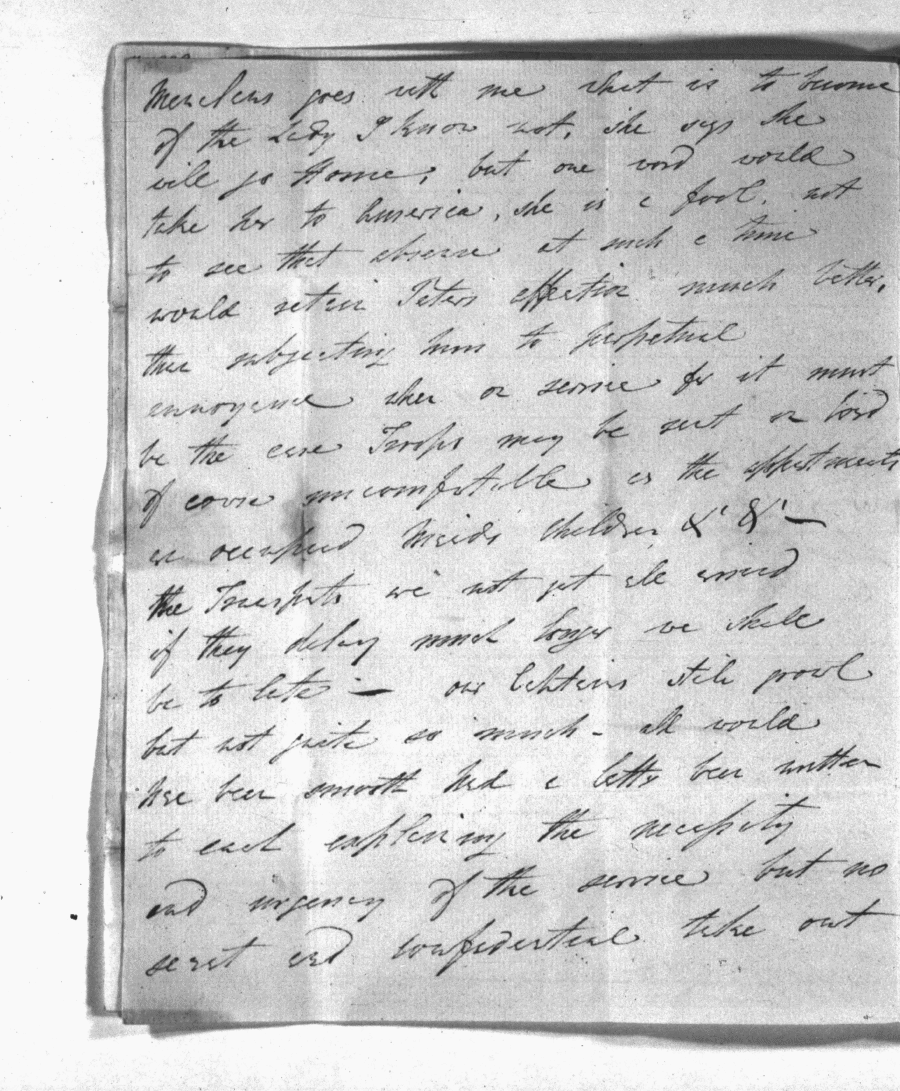 Menelaus goes with me what is to become
of the Lady I know not, she says she
will go Home; but one word would
take her to America, she is a fool, not
to see that absence at such a time
would retain Peters affection much better,
than subjecting him to perpetual
annoyance when on service for it must
be the case Troops may be sent on bord
of course uncomfortable as the appartments
are occupied Maids Children &c &c —
the Transports are not yet all arrived
if they delay much longer we shall
be to late — our Captains still growl
but not quite so much - all would
have been smooth had a letter been written
to each explaining the necessity
and urgency of the service but no
secret and confidential take out